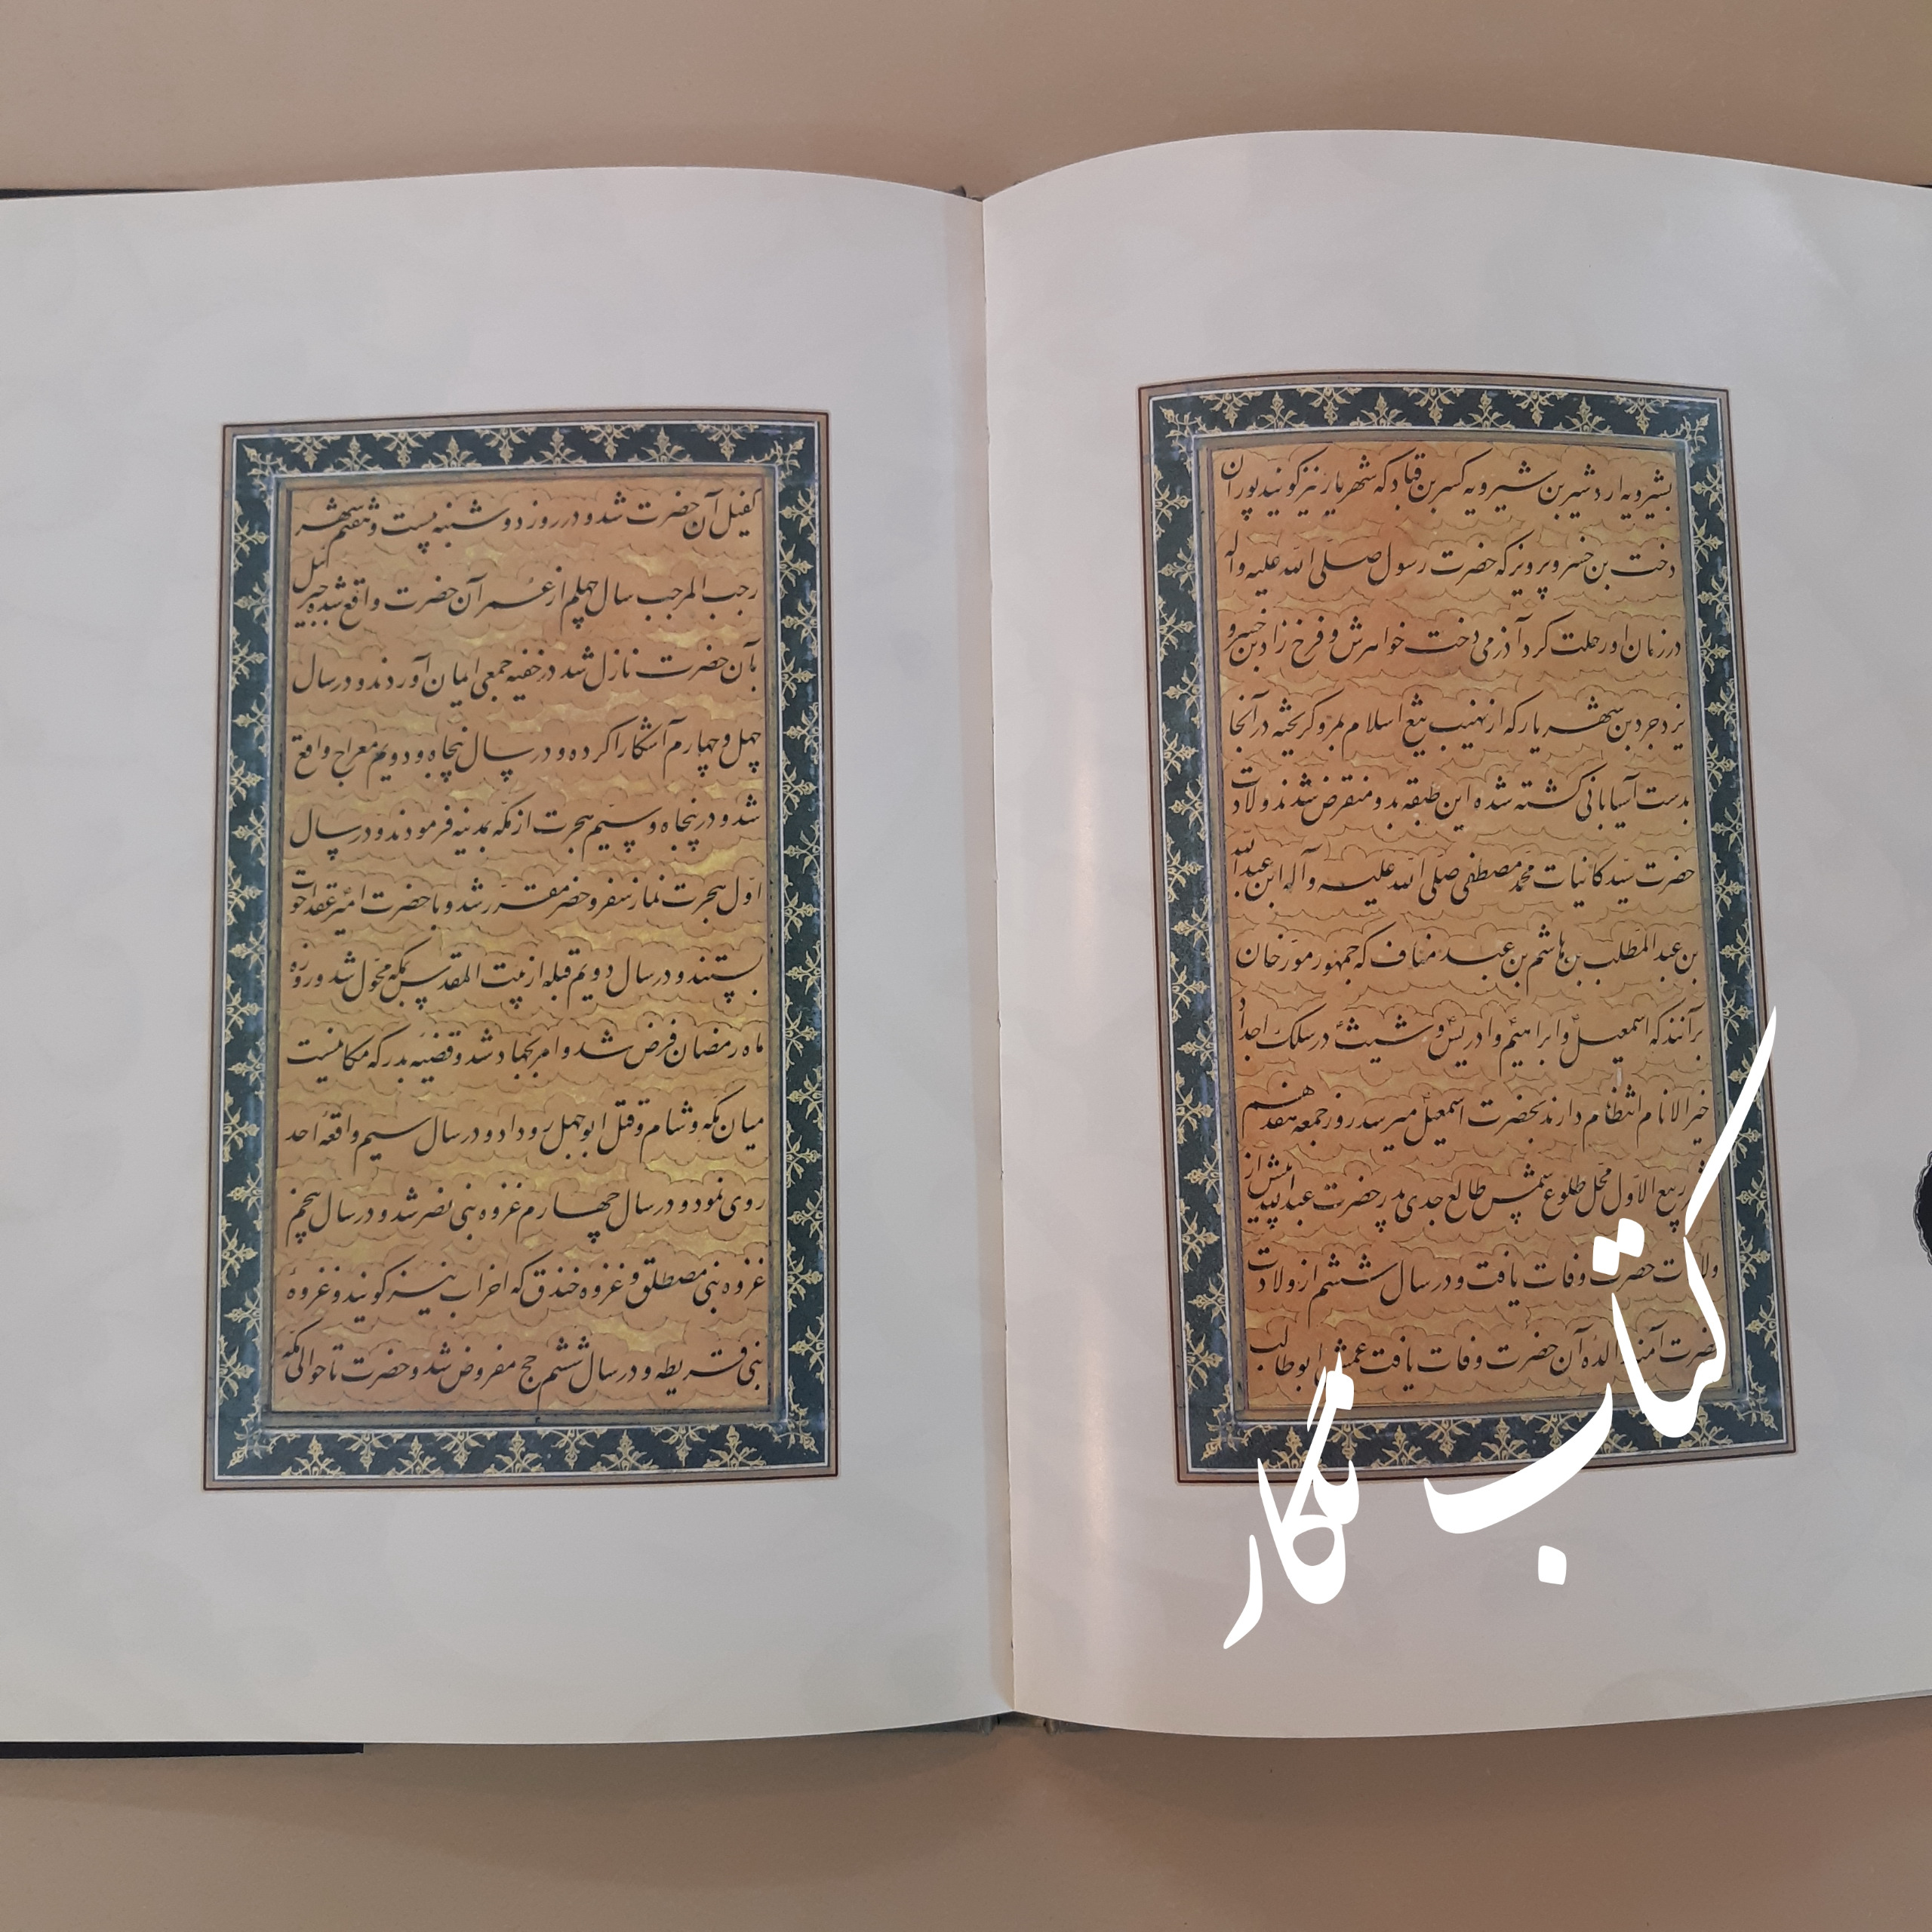 بشیرویه اردشیر بن شیرویه کسر بن قباد که شهریار نیز گویند پوران
دخت بن خسرو پرویز که حضرت رسول صلی الله علیه وآله
در زمان او رحلت کرد آذرمی دخت خواهرش و فرخ زاد بن خسرو
یزدجرد بن شهریار که از نهیب تیغ اسلام بمرو گریخته در آنجا
بدست آسیابانی کشته شده این طبقه بدو منقرض شدند ولادت
حضرت سید کائنات محمد مصطفی صلی الله علیه وآله ابن عبدالله
بن عبدالمطلب بن هاشم بن عبد مناف که جمهور مورخان
برآنند که اسمعیل و ابراهیم و ادریس و شیث در سلک اجداد
خیر الانام انتظام دارند بحضرت اسمعیل میرسد روز جمعه هفدهم
ربیع الاول محل طلوع شمس طالع جدی پدر حضرت عبدالله پیش از
ولادت حضرت وفات یافت و در سال ششم از ولادت
حضرت آمنه والده آن حضرت وفات یافت عمش ابوطالب
کفیل آن حضرت شد و در روز دوشنبه بیست و هفتم شهر
رجب المرجب سال چهلم از عمر آن حضرت واقع شده جبرئیل
بآن حضرت نازل شد در خفیه جمعی ایمان آوردند و در سال
چهل و چهارم آشکارا کرده و در سال پنجاه و دویم معراج واقع
شد و در پنجاه و سیم هجرت از مکه بمدینه فرمودند و در سال
اول هجرت نماز سفر و حضر مقرر شد و با حضرت امیر عقد اخوت
بستند و در سال دویم قبله از بیت المقدس بمکه محول شد و روزه
ماه رمضان فرض شد و امر بجهاد شد و قضیه بدر که مکانیست
میان مکه و شام و قتل ابوجهل رو داد و در سال سیم واقعه احد
روی نمود و در سال چهارم غزوه بنی نضر شد و در سال پنجم
غزوه بنی مصطلق و غزوه خندق که احزاب نیز گویند و غزوه
بنی قریظه و در سال ششم حج مفروض شد و حضرت تا حوالی مکه
کتاب نگار